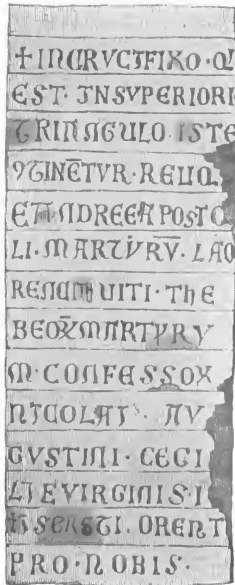 + INCRVCIFIXO · Q
EST · INSVPERIORI
TRIANGULO · ISTE
9TINĒTVR · RELIQ
ET ANDREE APOSTO
LI · MARTIRV̄ · LAO
VITI · THE
BEOꝜ MARTYRV
M · CONFESSOꝜ
NICOLAI · AV
GVSTINI · CECI
LIE VIRGINIS · I
ORENT
PRO · NOBIS ·